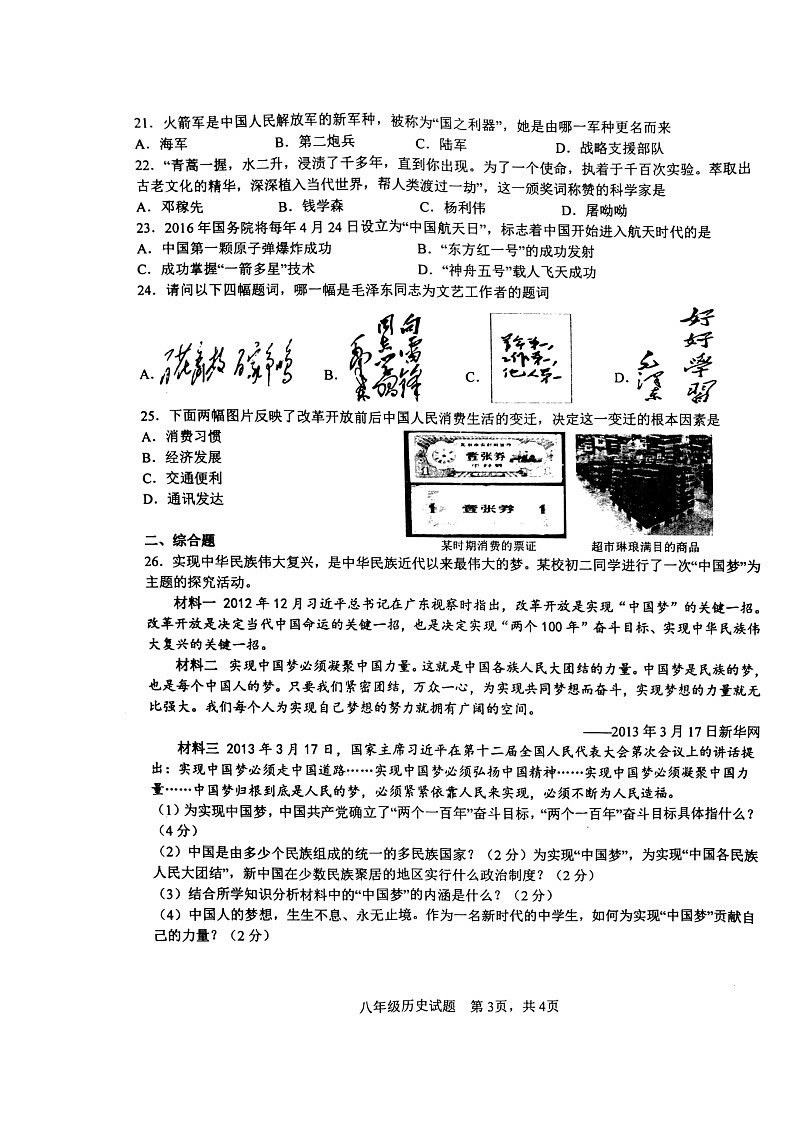 21．火箭军是中国人民解放军的新军种，被称为“国之利器”，她是由哪一军种更名而来
A．海军 B．第二炮兵 C．陆军 D．战略支援部队
22．“青蒿一握，水二升，浸渍了千多年，直到你出现。为了一个使命，执着于千百次实验。萃取出
古老文化的精华，深深植入当代世界，帮人类渡过一劫”，这一颁奖词称赞的科学家是
A．邓稼先 B．钱学森 C．杨利伟 D．屠呦呦
23．2016年国务院将每年4月24日设立为“中国航天日”，标志着中国开始进入航天时代的是
A．中国第一颗原子弹爆炸成功 B．“东方红一号”的成功发射
C．成功掌握“一箭多星”技术 D．“神舟五号”载人飞天成功
24．请问以下四幅题词，哪一幅是毛泽东同志为文艺工作者的题词
A．百花齐放 百家争鸣 B．向雷锋同志学习 毛泽东 C． D．好好学习 毛泽东
25．下面两幅图片反映了改革开放前后中国人民消费生活的变迁，决定这一变迁的根本因素是
A．消费习惯
B．经济发展
C．交通便利
D．通讯发达
壹张券
1 壹张券 1
某时期消费的票证 超市琳琅满目的商品
二、综合题
26．实现中华民族伟大复兴，是中华民族近代以来最伟大的梦。某校初二同学进行了一次“中国梦”为
主题的探究活动。
材料一 2012年12月习近平总书记在广东视察时指出，改革开放是实现“中国梦”的关键一招。
改革开放是决定当代中国命运的关键一招，也是决定实现“两个100年”奋斗目标、实现中华民族伟
大复兴的关键一招。
材料二 实现中国梦必须凝聚中国力量。这就是中国各族人民大团结的力量。中国梦是民族的梦，
也是每个中国人的梦。只要我们紧密团结，万众一心，为实现共同梦想而奋斗，实现梦想的力量就无
比强大。我们每个人为实现自己梦想的努力就拥有广阔的空间。
——2013年3月17日新华网
材料三 2013年3月17日，国家主席习近平在第十二届全国人民代表大会第次会议上的讲话提
出：实现中国梦必须走中国道路……实现中国梦必须弘扬中国精神……实现中国梦必须凝聚中国力
量……中国梦归根到底是人民的梦，必须紧紧依靠人民来实现，必须不断为人民造福。
（1）为实现中国梦，中国共产党确立了“两个一百年”奋斗目标，“两个一百年”奋斗目标具体指什么？
（4分）
（2）中国是由多少个民族组成的统一的多民族国家？（2分）为实现“中国梦”，为实现“中国各民族
人民大团结”，新中国在少数民族聚居的地区实行什么政治制度？（2分）
（3）结合所学知识分析材料中的“中国梦”的内涵是什么？（2分）
（4）中国人的梦想，生生不息、永无止境。作为一名新时代的中学生，如何为实现“中国梦”贡献自
己的力量？（2分）
八年级历史试题 第3页，共4页